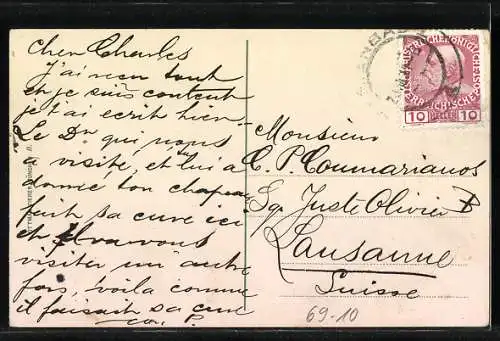 Cher Charles
J'ai reçu tout
et je suis content
je t'ai écrit hier.
Le Dr. qui nous
a visité, et lui a
donné ton chapeau
fait sa cure ici
et il va vous
visiter un autre
fois, voilà comme
il faisait sa cure
Monsieur
C. P. Coumarianos
Sq. Juste Olivier
Lausanne
Suisse
69-10
10 HELLER 10